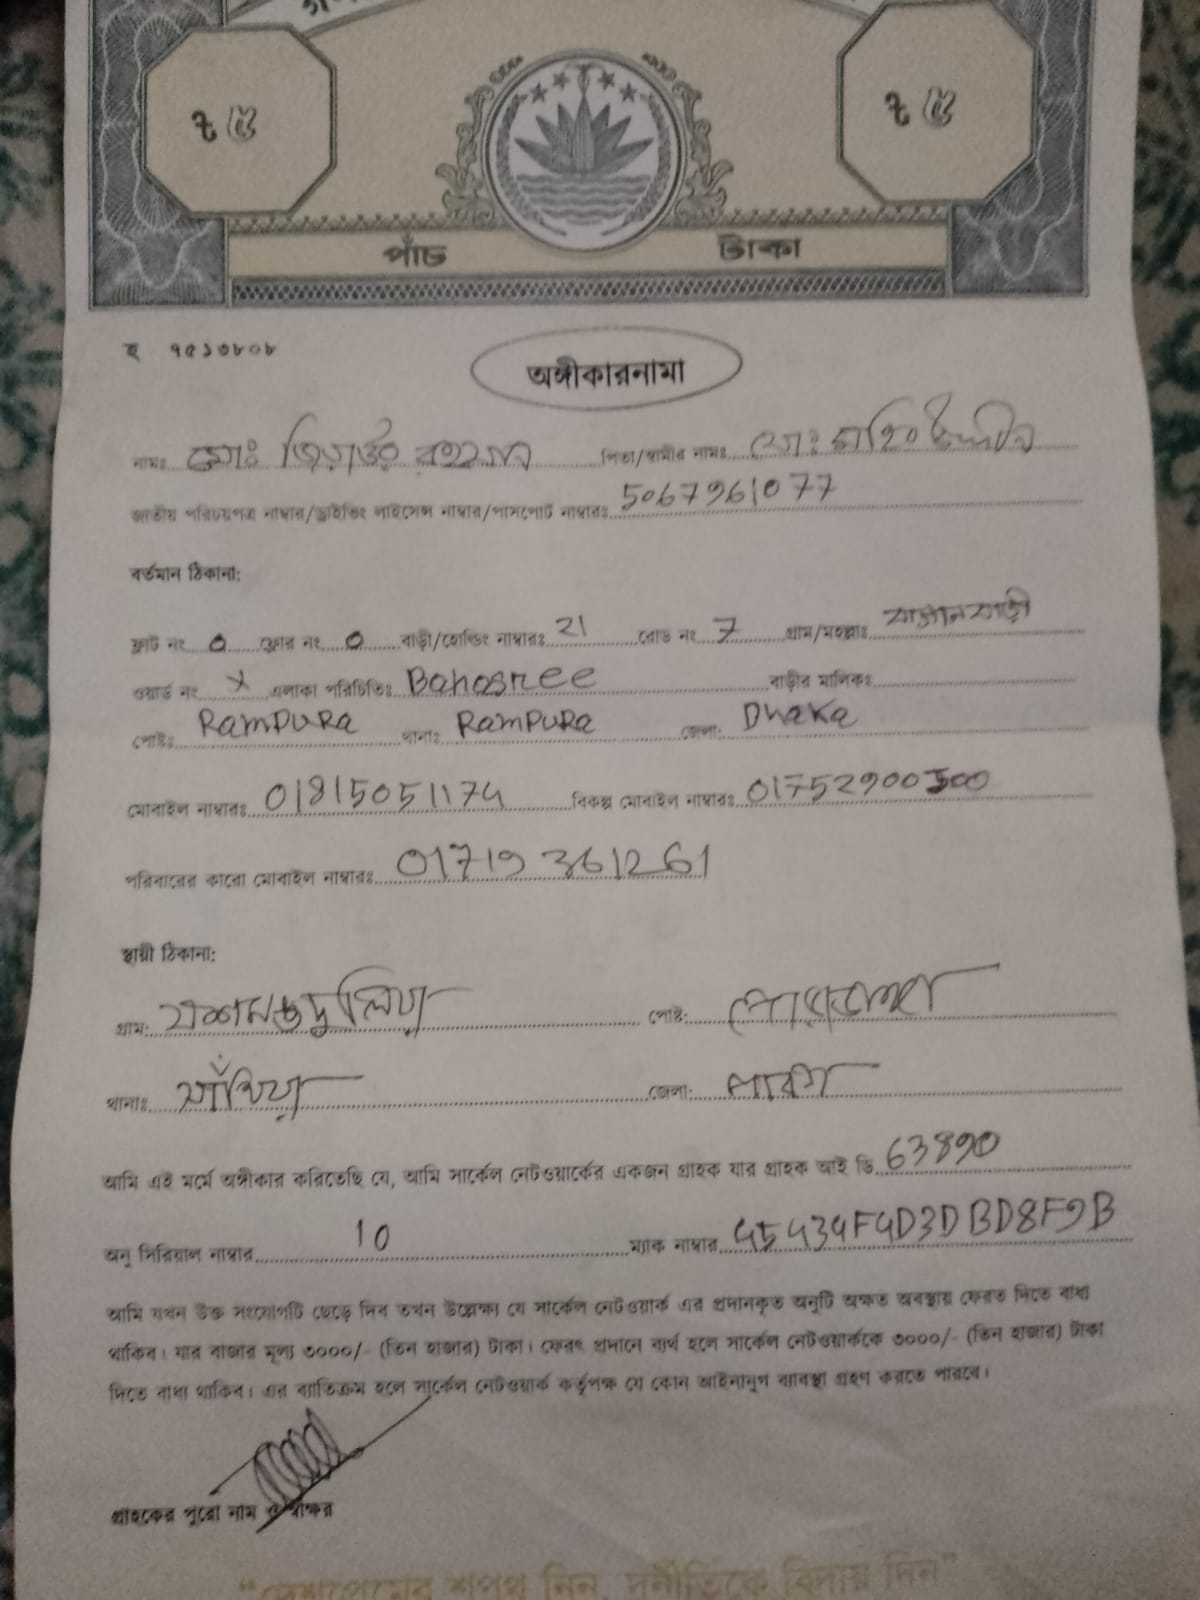 ৳ ৫ ৳ ৫
পাঁচ টাকা
হ ৭৫১৩৮০৮
অঙ্গীকারনামা
নামঃ মোঃ জিয়াউর রহমান পিতা/স্বামীর নামঃ মোঃ মহিউদ্দীন
জাতীয় পরিচয়পত্র নাম্বার/ড্রাইভিং লাইসেন্স নাম্বার/পাসপোর্ট নাম্বারঃ 5067961077
বর্তমান ঠিকানা:
ফ্লাট নং 0 ফ্লোর নং 0 বাড়ী/হোল্ডিং নাম্বারঃ 21 রোড নং 7 গ্রাম/মহল্লাঃ
ওয়ার্ড নং X এলাকা পরিচিতিঃ Banasree বাড়ীর মালিকঃ
পোষ্টঃ Rampura থানাঃ Rampura জেলা: Dhaka
মোবাইল নাম্বারঃ 01815051174 বিকল্প মোবাইল নাম্বারঃ 01752900500
পরিবারের কারো মোবাইল নাম্বারঃ 01719361261
স্থায়ী ঠিকানা:
গ্রাম: পোষ্ট:
থানাঃ সাঁথিয়া জেলা: পাবনা
আমি এই মর্মে অঙ্গীকার করিতেছি যে, আমি সার্কেল নেটওয়ার্কের একজন গ্রাহক যার গ্রাহক আই ডি 63890
অনু সিরিয়াল নাম্বার 10 ম্যাক নাম্বার 45434F4D3DBD8F9B
আমি যখন উক্ত সংযোগটি ছেড়ে দিব তখন উল্লেক্ষ্য যে সার্কেল নেটওয়ার্ক এর প্রদানকৃত অনুটি অক্ষত অবস্থায় ফেরত দিতে বাধ্য
থাকিব। যার বাজার মূল্য ৩০০০/- (তিন হাজার) টাকা। ফেরৎ প্রদানে ব্যর্থ হলে সার্কেল নেটওয়ার্ককে ৩০০০/- (তিন হাজার) টাকা
দিতে বাধ্য থাকিব। এর ব্যতিক্রম হলে সার্কেল নেটওয়ার্ক কর্তৃপক্ষ যে কোন আইনানুগ ব্যবস্থা গ্রহণ করতে পারবে।
গ্রাহকের পুরো নাম ও স্বাক্ষর
"দেশপ্রেমের শপথ নিন, দুর্নীতিকে বিদায় দিন"